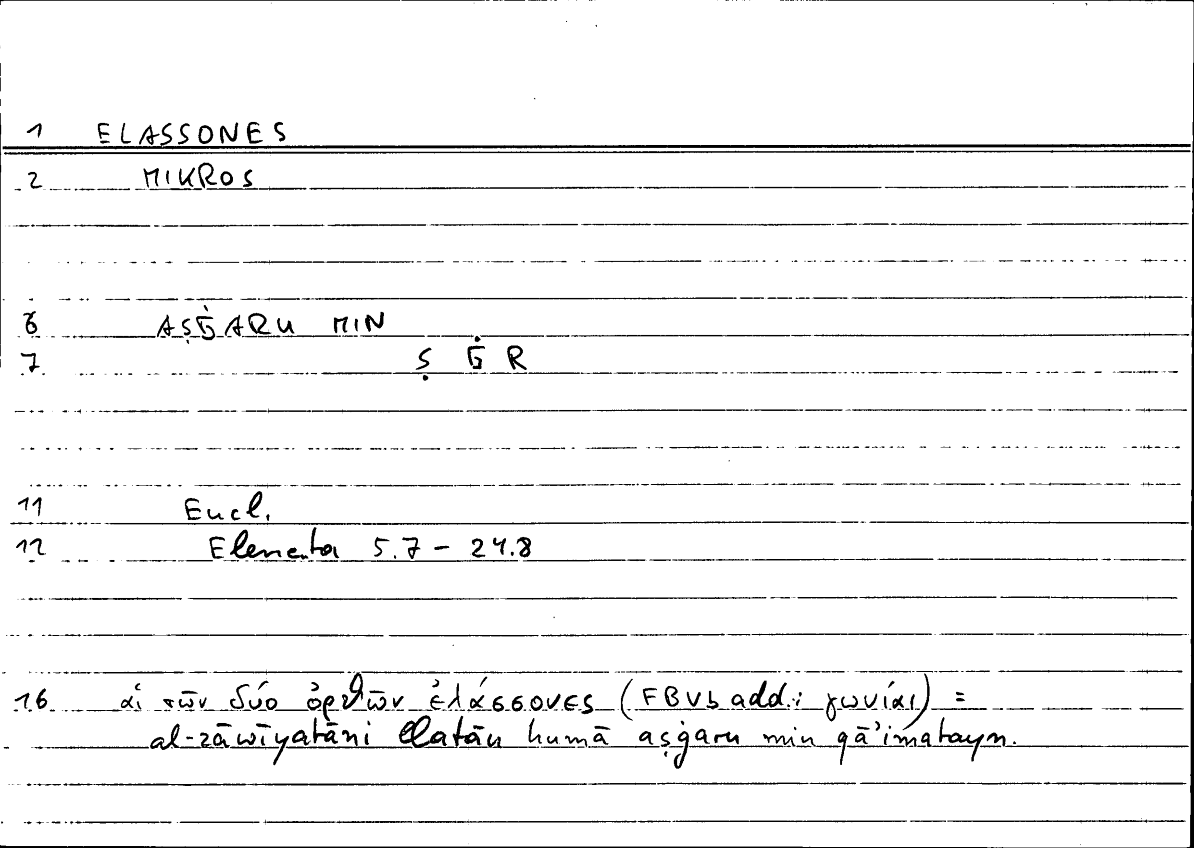 1 ELASSONES
2 MIKROS
6 AṢĠARU MIN
7 Ṣ Ġ R
11 Eucl.
12 Elementa 5.7 - 24.8
16 αἱ τῶν δύο ὀρθῶν ἐλάσσονες (FBVb add.: γωνίαι) =
al-zāwīyatāni llatān humā aṣġaru min qā'imatayn.